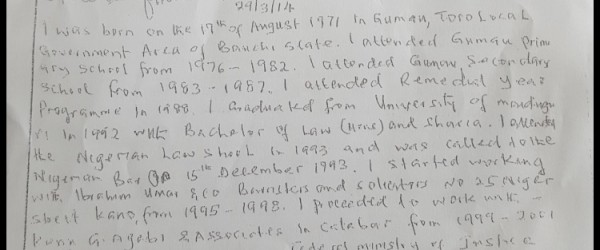 29/3/14
I was born on the 17th of August 1971 in Gumau, Toro Local
Government Area of Bauchi state. I attended Gumau prim
ary school from 1976 - 1982. I attended Gumau Secondary
school from 1983 - 1987. I attended Remedial Year
Programme In 1988. I Graduated from University of maidugu
ri In 1992 with Bachelor of Law (Hons) and Sharia. I attended
the Nigerian Law school in 1993 and was called to the
Nigerian Bar on 15th December 1993. I started working
with Ibrahim Umar & co Barristers and solicitors No 25 Niger
street Kano, from 1995 - 1998. I proceeded to work with -
& Associates In Calabar from 1999 - 2001
Federal ministry of justice